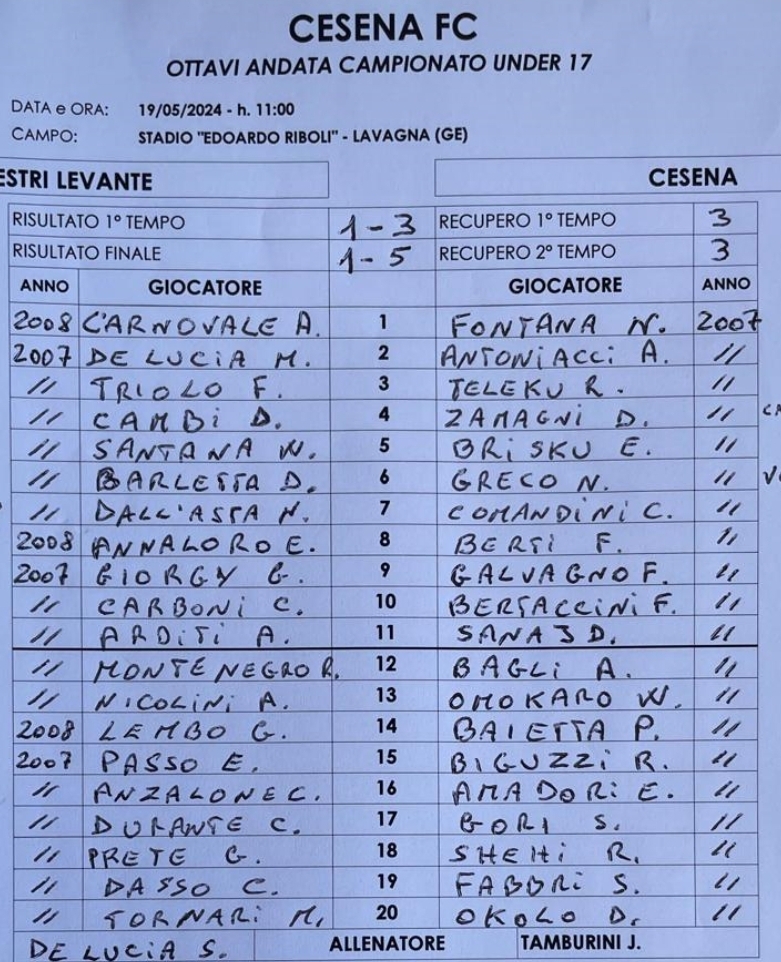 CESENA FC
OTTAVI ANDATA CAMPIONATO UNDER 17
DATA e ORA: 19/05/2024 - h. 11:00
CAMPO: STADIO "EDOARDO RIBOLI" - LAVAGNA (GE)
ESTRI LEVANTE CESENA
RISULTATO 1° TEMPO 1-3 RECUPERO 1° TEMPO 3
RISULTATO FINALE 1-5 RECUPERO 2° TEMPO 3
ANNO GIOCATORE GIOCATORE ANNO
2008 CARNOVALE A. 1 FONTANA N. 2007
2007 DE LUCIA M. 2 ANTONIACCI A. //
// TRIOLO F. 3 TELEKU R. //
// CAMBI D. 4 ZAMAGNI D. // CA
// SANTANA W. 5 BRISKU E. //
// BARLETTA D. 6 GRECO N. //
// DALL'ASTA N. 7 COMANDINI C. //
2008 ANNALORO E. 8 BERTI F. //
2007 GIORGY G. 9 GALVAGNO F. //
// CARBONI C. 10 BERTACCINI F. //
// ARDITI A. 11 SANAJ D. //
// MONTENEGRO R. 12 BAGLI A. //
// NICOLINI A. 13 OMOKARO W. //
2008 LEMBO G. 14 BAIETTA P. //
2007 PASSO E. 15 BIGUZZI R. //
// ANZALONE C. 16 AMADORI E. //
// DURANTE C. 17 GORI S. //
// PRETE G. 18 SHEHI R. //
// DASSO C. 19 FABBRI S. //
// TORNARI M. 20 OKOLO D. //
DE LUCIA S. ALLENATORE TAMBURINI J.